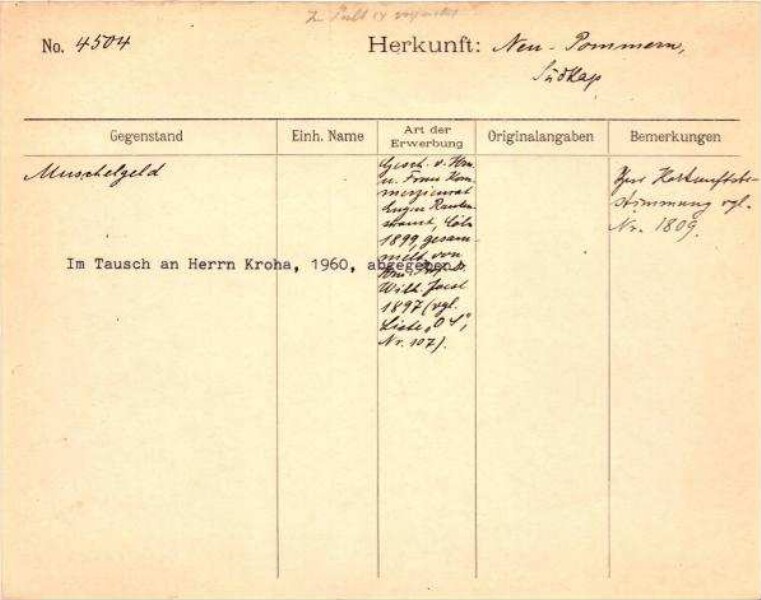 No. 4504
Herkunft: Neu-Pommern,
Südkap
Gegenstand
Einh. Name
Art der
Erwerbung
Originalangaben
Bemerkungen
Muschelgeld
Gesch. v. Hrn.
u. Frau Kom-
merzienrat
Eugen Rauten-
strauch, Cöln
1899, gesam-
melt von
Hrn. Prof. Dr.
Wilh. Joest
1897 (vgl.
Liste „O 4",
Nr. 107).
Zur Herkunftsbe-
stimmung vgl.
Nr. 1809.
Im Tausch an Herrn Kroha, 1960, abgegeben.